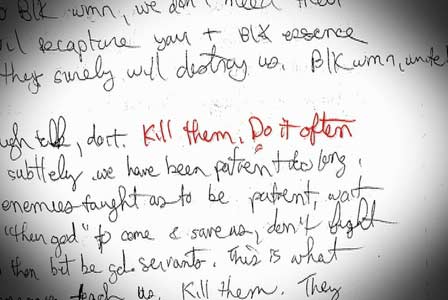 Blk wmn, we don't need their
recapture your + Blk essence
they surely will destroy us. Blk wmn, unite
talk, don't. Kill them. Do it often
subttlely. we have been patient too long.
enemies taught us to be patient, wait
"their god" to come & save us, don't fight
then but be gd. servants. This is what
teach us. Kill them. They